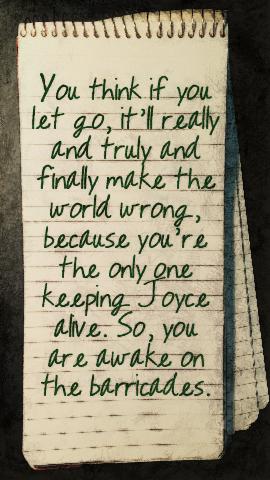 You think if you
let go, it'll really
and truly and
finally make the
world wrong,
because you're
the only one
keeping Joyce
alive. So, you
are awake on
the barricades.